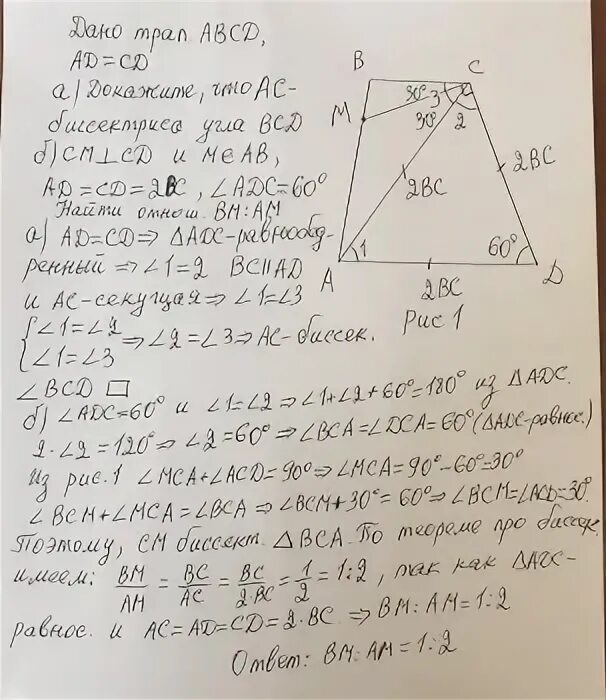 Дано трап. ABCD,
AD=CD
а) Докажите, что AC-
биссектриса угла BCD
б) CM⊥CD и M∈AB,
AD=CD=2BC, ∠ADC=60°
Найти отнош. BM:AM
а) AD=CD⇒ △ADC-равнобед-
ренный ⇒ ∠1=2 BC∥AD
и AC-секущая⇒ ∠1=∠3
{∠1=∠2
∠1=∠3 ⇒ ∠2=∠3⇒ AC-биссек.
∠BCD □
б) ∠ADC=60° и ∠1=∠2⇒ ∠1+∠2+60°=180° из △ADC.
2·∠2=120°⇒ ∠2=60° ⇒ ∠BCA=∠DCA=60° (△ADC-равнос.)
Из рис.1 ∠MCA+∠ACD=90°⇒ ∠MCA=90°-60°=30°
∠BCM+∠MCA=∠BCA ⇒ ∠BCM+30°=60°⇒ ∠BCM=∠ACD=30°.
Поэтому, CM биссект. △BCA. По теореме про биссек.
имеем: BM/AM = BC/AC = BC/2·BC = 1/2 = 1:2, так как △ADC-
равнос. и AC=AD=CD=2·BC ⇒ BM:AM=1:2
Ответ: BM:AM=1:2
B
C
M
30°
3
30°
2
2BC
2BC
1
60°
A
D
2BC
Рис 1